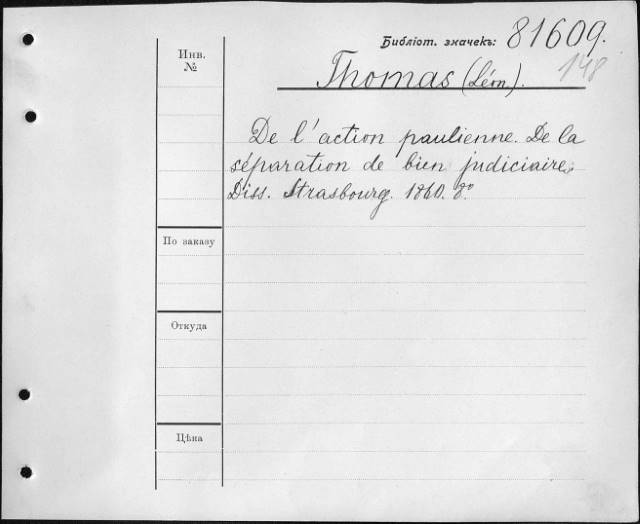 Библіот. значекъ: 81609.
148
Инв.
№
Thomas (Léon).
De l'action paulienne. De la
séparation de bien judiciaire.
Diss. Strasbourg. 1860. 8°.
По заказу
Откуда
Цѣна